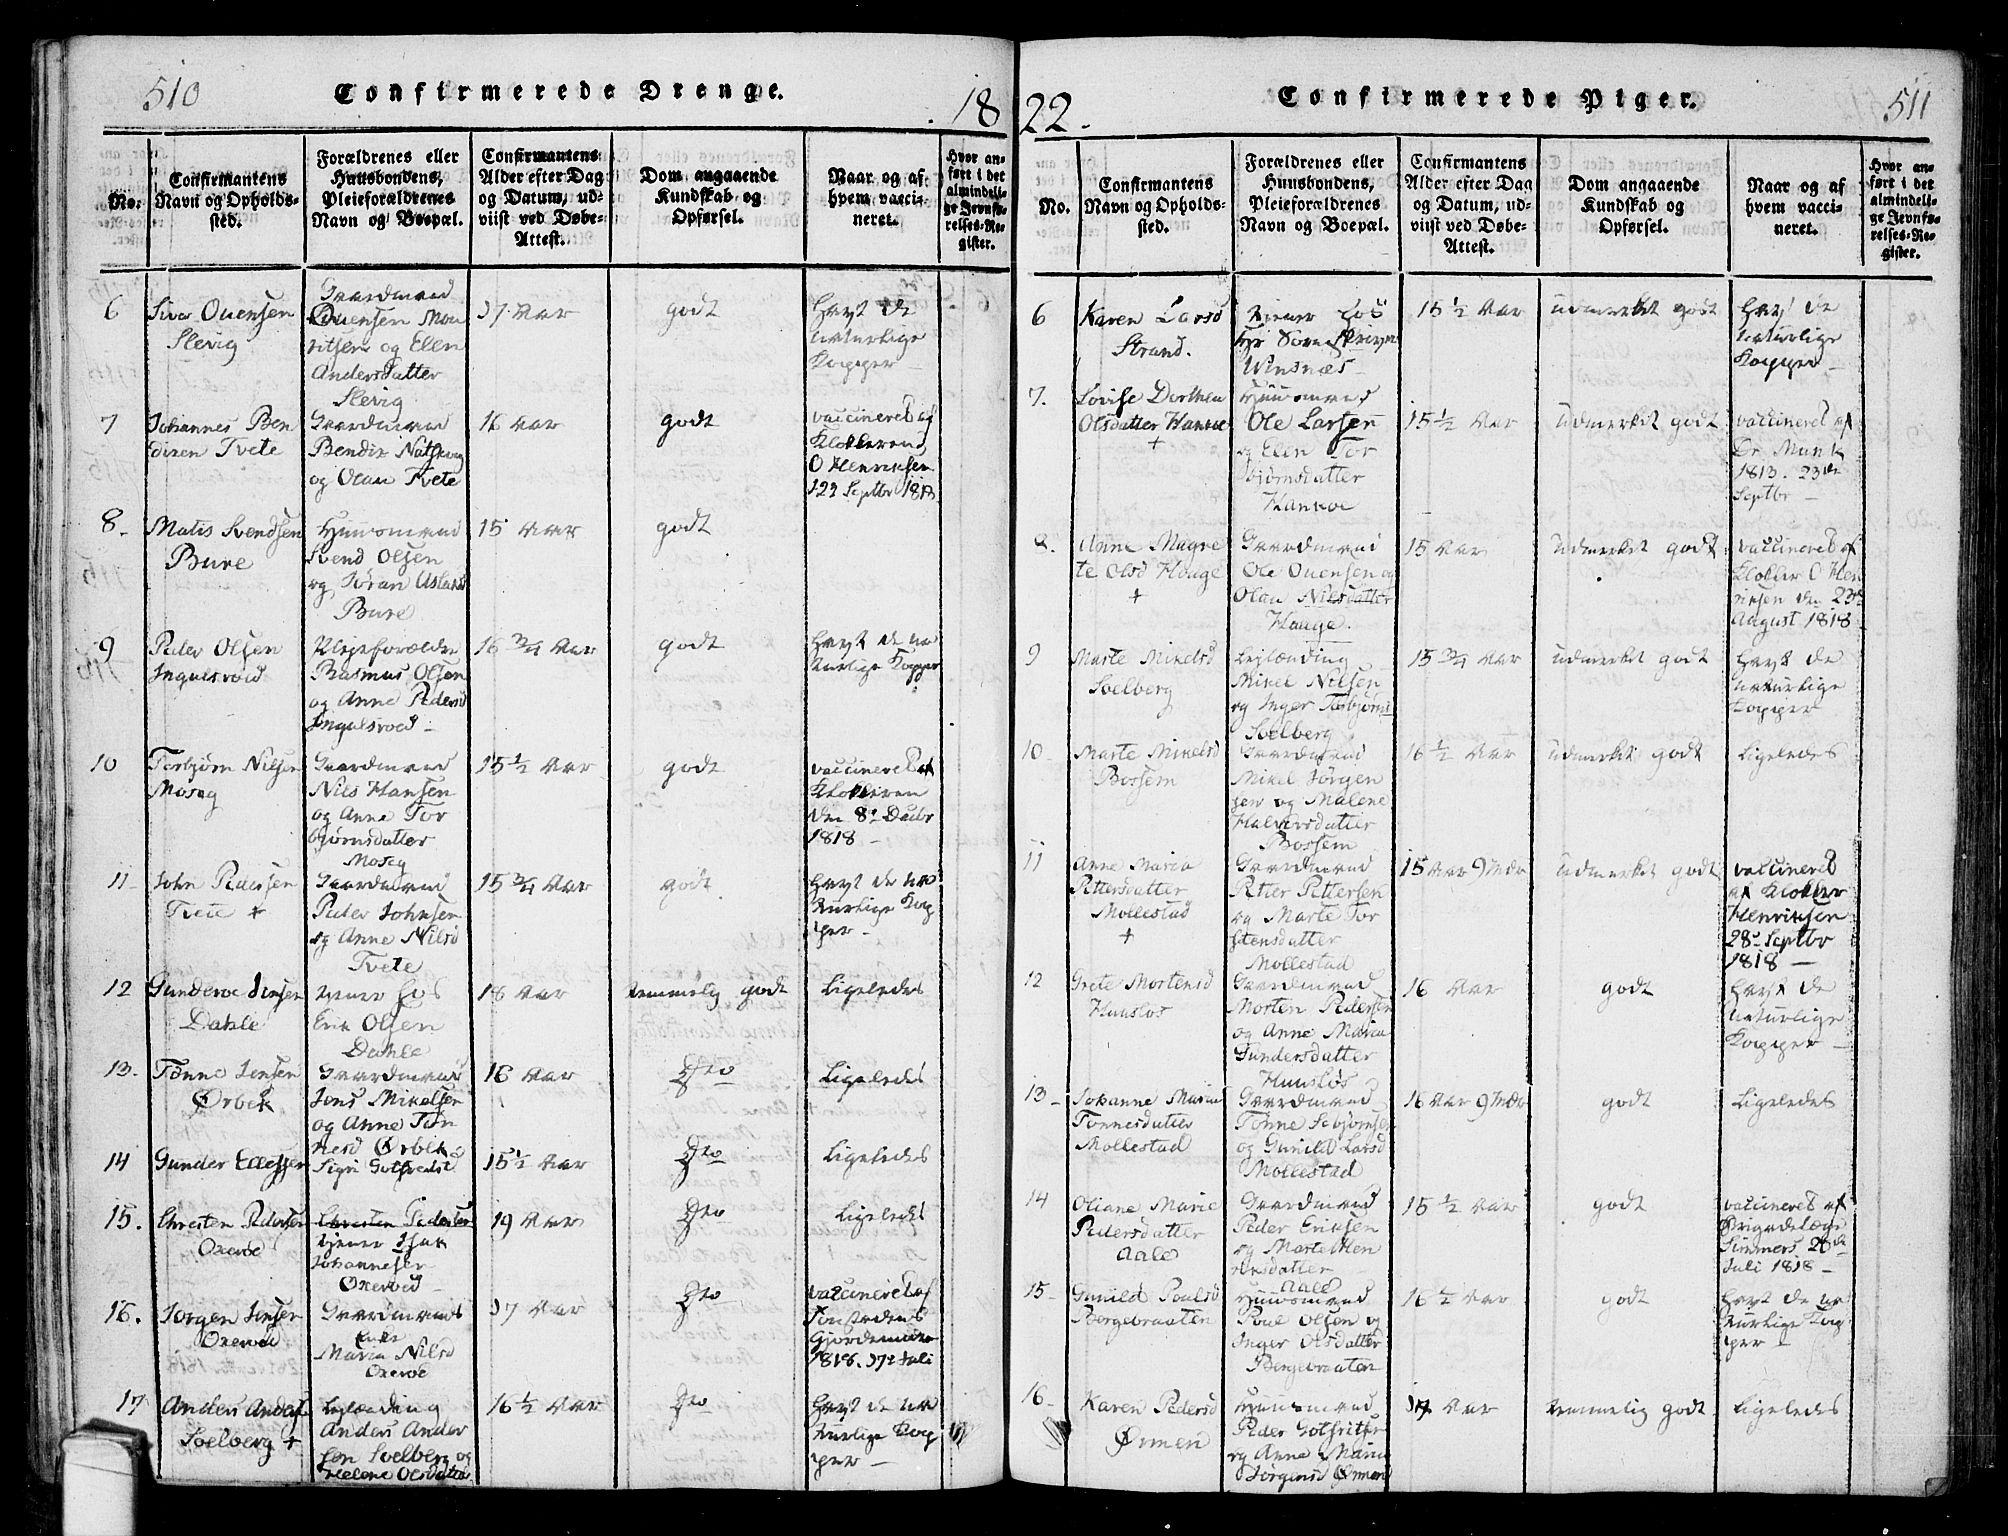 510
Confirmerede Drenge.
18
No.
Confirmantens Navn og Opholds-sted.
Forældrenes eller Huusbondens, Pleieforældrenes Navn og Boepæl.
Confirmantens Alder efter Dag og Datum, ud-viist ved Døbe-Attest.
Dom angaaende Kundskab og Opførsel.
Naar og af hvem vacci-neret.
Hvor an-ført i det almindeli-ge Jevnfø-relses-Re-gister.
6
Siver Ouensen
Slevig
Gaardmand
Ouensen Mou
ritsen og Ellen
Andersdatter
Slevig
17 Aar
godt
havt de
naturlige
Kopper
7
Johannes Ben
dixen Tvete
Gaardmand
Bendix
og Olau Tvete
16 Aar
godt
vaccineret af
Klokkeren
O Henriksen
8
Matis Svendsen
Bure
Huusmand
Svend Olsen
og Jøran Aslaks
Bure
15 Aar
godt
9
Peder Olsen
Ingulsroid
Plejeforældre
Rasmus Olsen
og Anne Pedersd
Ingulsroed
16 3/4 Aar
godt
havt de na
turlige Kopper
10
Torbjørn Nilsen
Moseg
Gaardmand
Nils Hansen
og Anne Tor
bjørnsdatter
Moseg
15 1/2 Aar
godt
vaccineret af
Klokkeren
den 8 Decbr
1818
11
John Pedersen
Tvete +
Gaardmand
Peder Johnsen
og Anne Nilsd
Tvete
15 3/4 Aar
godt
havt de na
turlige Kop
per
12
Gunderoe Jensen
Dahle
tjener hos
Erik Olsen
Dahle
18 Aar
temmelig godt
Ligeledes
13
Tønne Jensen
Ørbek
Gaardmand
Jens Mikelsen
og Anne Tøn
nesd Ørbek
16 Aar
Dto
Ligeledes
14
Gunder Ellefsen
Sigri Gotfredsd
15 1/2 Aar
Dto
Ligeledes
15.
Christen Pedersen
Oxeroe
Christen Pedersen
tjener Isak
Johannesen
Oxeroed
19 Aar
Dto
Ligeledes
16.
Jorgen Jensen
Oxeroed
Gaardmands
Enke
Maria Nilsd
Oxeroe
17 Aar
Dto
vaccineret af
Gjordemoer
1818. 17 Juli
17
Anders Anders
Soelberg +
Lejlænding
Anders Ander
sen Soelberg og
Helene Olsdatter
16 1/2 Aar
Dto
havt de na
turlige Kop
per
22.
Confirmerede Piger.
511
No.
Confirmantens Navn og Opholds-sted.
Forældrenes eller Huusbondens, Pleieforældrenes Navn og Boepæl.
Confirmantens Alder efter Dag og Datum, ud-viist ved Døbe-Attest.
Dom angaaende Kundskab og Opførsel.
Naar og af hvem vacci-neret.
Hvor an-ført i det almindeli-ge Jevnfø-relses-Re-gister.
6
Karen Larsd
Strand.
tjener hos
Hr Sorenskriver
Winsnæs
15 1/2 Aar
udmerket godt
havt de
naturlige
Kopper
7.
Lovise Dorthea
Olsdatter Hankoe
+
Huusmand
Ole Larsen
og Elen Tor
bjørnsdatter
Hankoe
15 1/2 Aar
Udmerket godt
vaccineret af
Dr Munk
1813. 23de
Septbr
8.
Anne Magre
te Olsd Houge
+
Gaardmand
Ole Ouensen og
Olau Nilsdatter
Houge.
15 Aar
Udmerket godt
vaccineret af
Klokker O Hen
riksen den 23de
August 1818
9
Marte Mikelsd
Soelberg
Lejlænding
Mikel Nilsen
og Inger Torbjørns
Soelberg
15 3/4 Aar
udmerket godt
havt de
naturlige
Kopper
10
Marte Mikelsd
Bossem
Gaardmand
Mikel Jørgen
sen og Malene
Halvorsdatter
Bossem
16 1/2 Aar
udmerket godt
Ligeledes
11
Anne Maria
Pettersdatter
Mollestad
+
Gaardmand
Petter Pettersen
og Marte Tor
stensdatter
Mollestad
15 Aar 9 Mdr
Udmerket godt
vaccineret
af Klokker
Henriksen
28 Septbr
1818
12
Grete Mortensd
Huusløs
Gaardmand
Morten Pedersen
og Anne Maria
Gundersdatter
Huusløs
16 Aar
godt
havt de
naturlige
Kopper
13
Johanne Maria
Tonnesdatter
Mollestad
Gaardmand
Tønne Esbjørnsen
og Gunild Larsd
Mollestad
16 Aar 9 Mdr
godt
Ligeledes
14
Oliane Marie
Pedersdatter
Aale
Gaardmand
Peder Eriksen
og Marte Hen
riksdatter
Aale
15 1/2 Aar
godt
vaccineret af
Brigadelæge
Simmers
Juli 1818
15
Gunild Poulsd
Borgebraaten
Huusmand
Poul Olsen og
Inger Olsdatter
Borgebraaten
16 1/2 Aar
godt
havt de na
turlige Kop
per
16
Karen Pedersd
Ørmen
Huusmand
Peder Gotfritsen
og Anne Maria
Jørgensd Ørmen
17 Aar
temmelig godt
Ligeledes